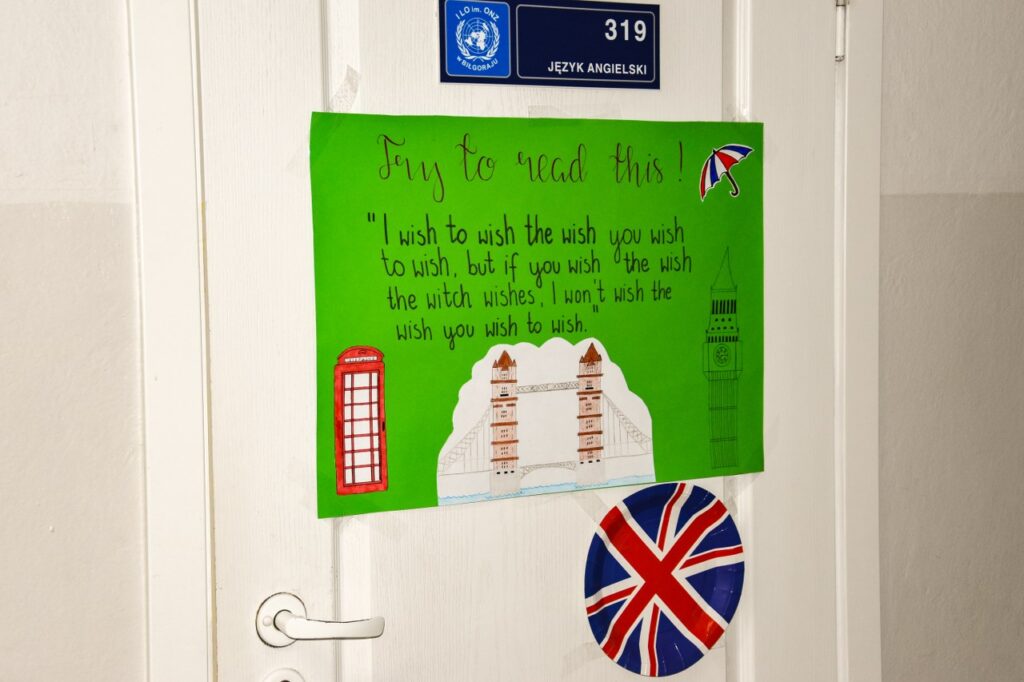 I LO im. ONZ
w BIŁGORAJU
319
JĘZYK ANGIELSKI
Try to read this!
"I wish to wish the wish you wish
to wish, but if you wish the wish
the witch wishes, I won't wish the
wish you wish to wish."